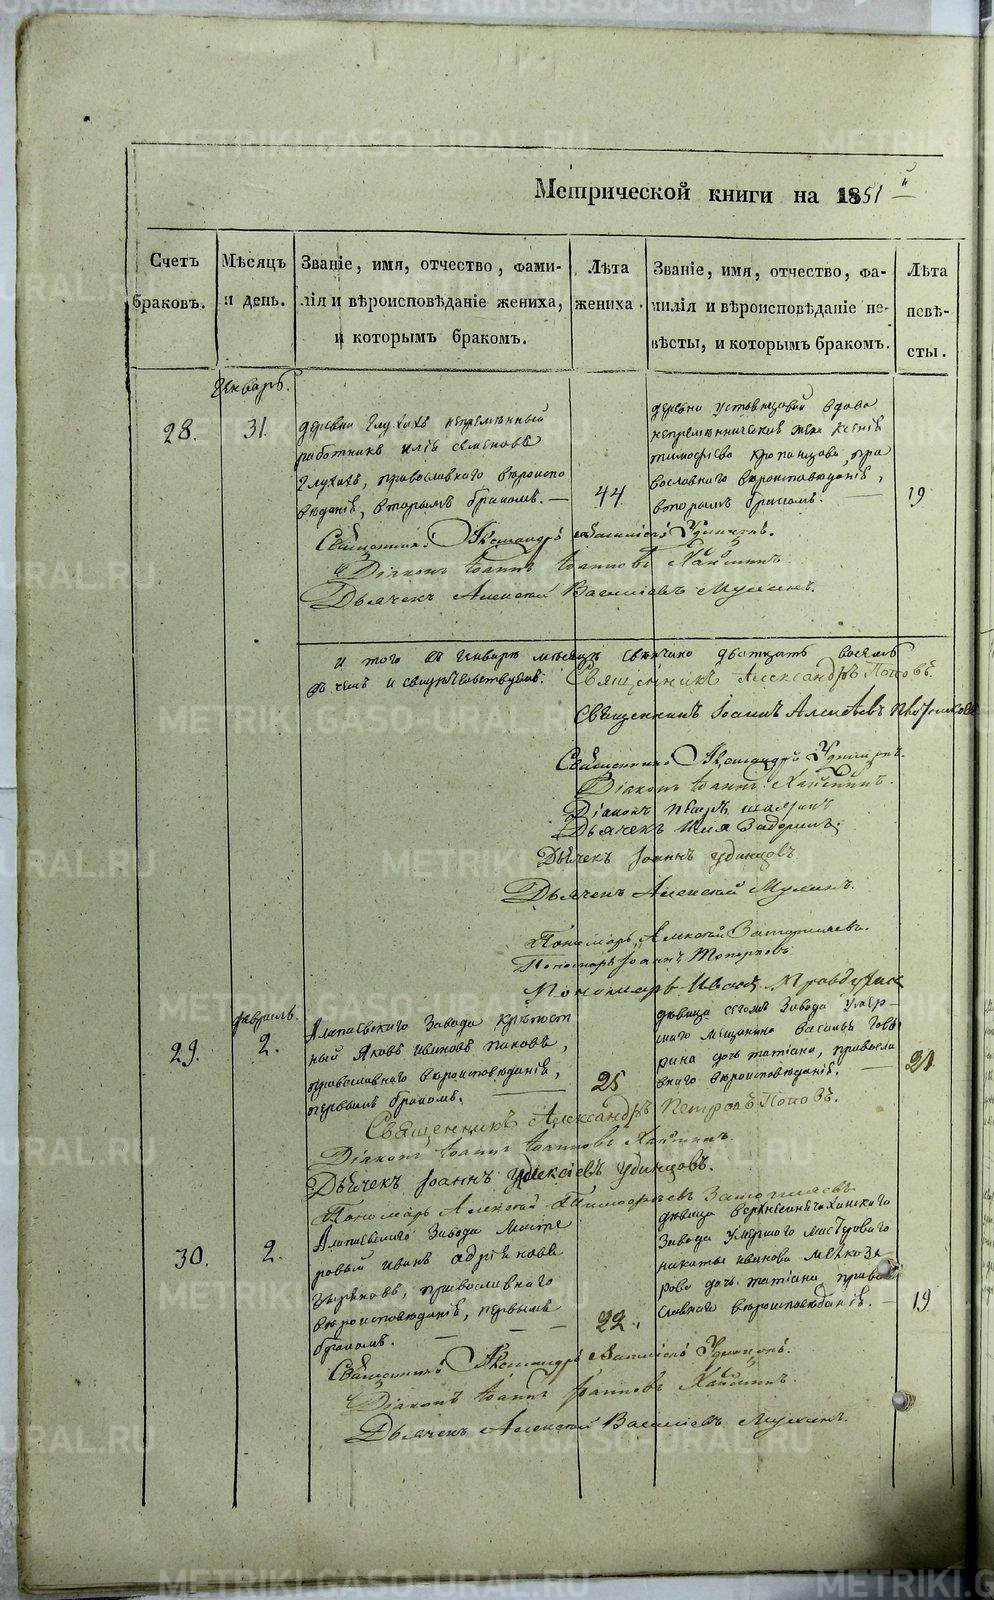 Метрической книги на 1851
Счетъ браковъ.
Мѣсяцъ и день.
Званіе, имя, отчество, фами-
лія и вѣроисповѣданіе жениха,
и которымъ бракомъ.
Лѣта жениха.
Званіе, имя, отчество, фа-
милія и вѣроисповѣданіе не-
вѣсты, и которымъ бракомъ.
Лѣта невѣ-
сты.
Генварь.
28.
31.
деревни Глухихъ непремѣнный
работникъ Илія Семеновъ
Глухихъ, православнаго вѣроиспо
вѣданія, вторымъ бракомъ. —
44.
деревни Устьянцовой вдова
непремѣнническая жена Ксенія
Тимофѣева пра
вославнаго вѣроисповѣданія,
вторымъ бракомъ.
19
Священникъ Александръ Васильевъ Удинцовъ.
Діаконъ Іоаннъ Іоанновъ
Дьячекъ Алексей Васильевъ Мухинъ.
и того въ Генварѣ мѣсяцѣ свѣнчано двадцать восемь
въ чемъ и свидѣтельствуемъ: Священникъ Александръ Поповъ.
Священникъ Іоаннъ Алексѣевъ
Священникъ Александръ Удинцовъ.
Діаконъ Іоаннъ
Діаконъ
Дьячекъ Илія
Дьячекъ Іоаннъ Удинцовъ
Дьячекъ Алексей Мухинъ.
Пономарь Алексей
Пономарь Іоаннъ Топорковъ
Пономарь Иванъ
февраль.
29.
2.
Алапаевскаго Завода крѣпост
ный Яковъ Ивановъ Паковъ,
православнаго вѣроисповѣданія,
первымъ бракомъ.
25
дѣвица сегожъ Завода умер-
шаго мещанина Василья Гов
рина дочь Татіана, правосла
внаго вѣроисповѣданія. —
21
Священникъ Александръ Петровъ Поповъ.
Діаконъ Іоаннъ Іоанновъ
Дьячекъ Іоаннъ Алексіевъ Удинцовъ.
Пономарь Алексей Тимофеевъ
30.
2.
Алапаевскаго Завода масте
ровый Иванъ Адріановъ
Зыряновъ, православнаго
вѣроисповѣданія, первымъ
бракомъ.
22.
дѣвица Верхнесинячихинскаго
Завода умершаго мастероваго
Никиты Иванова Мѣлкозе
рова дочь Татіана, право
славнаго вѣроисповѣданія. —
19
Священникъ Александръ Васильевъ Удинцовъ.
Діаконъ Іоаннъ Іоанновъ
Дьячекъ Алексей Васильевъ Мухинъ.
METRIKI.GASO-URAL.RU